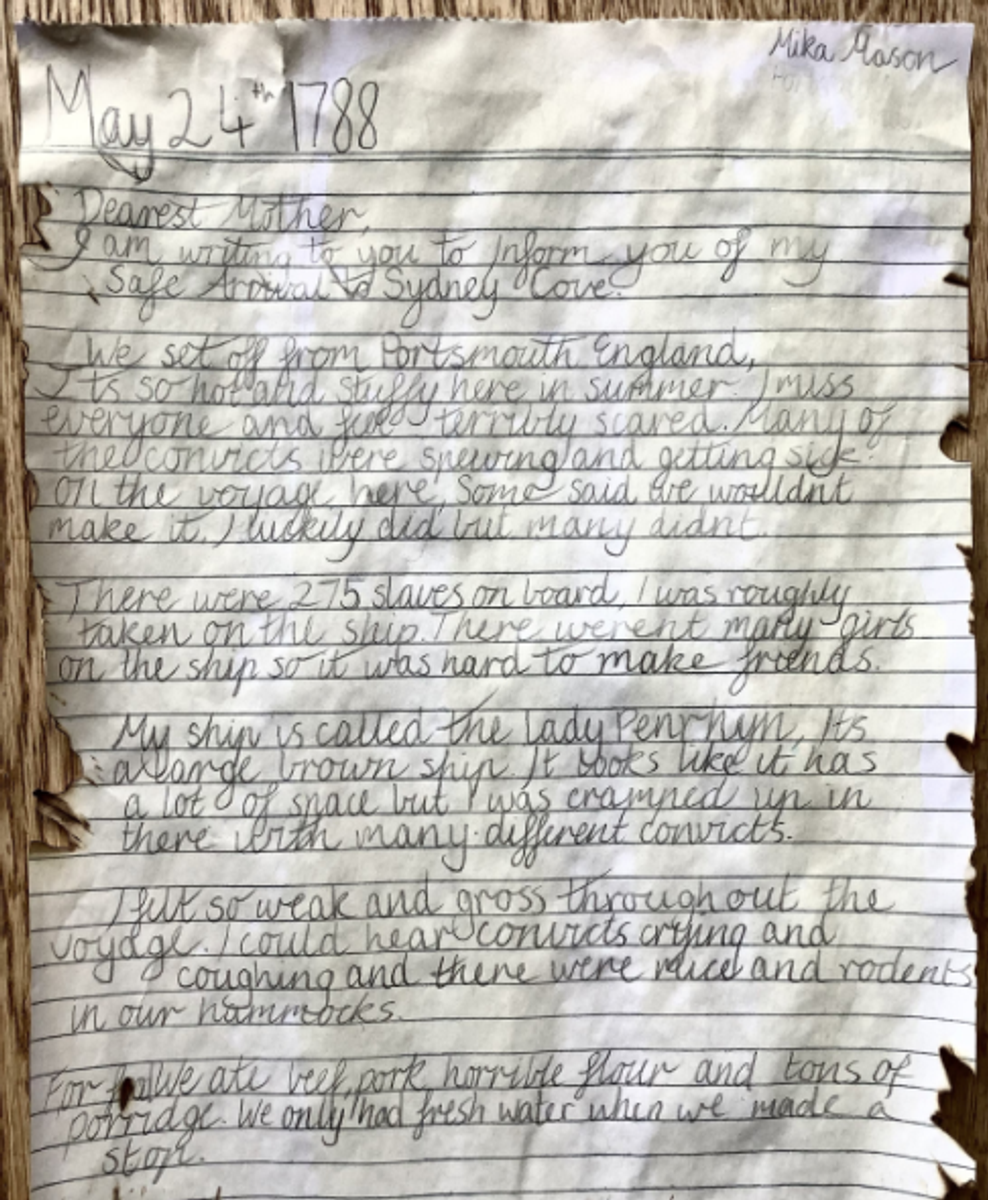 Mika Mason
May 24th 1788
Dearest Mother,
I am writing to you to Inform you of my
Safe Arrival to Sydney Cove.
We set off from Portsmouth England,
Its so hot and stuffy here in summer. I miss
everyone and feel terribly scared. Many of
the convicts were spewing and getting sick
on the voyage here, Some said we wouldnt
make it. I luckily did but many didnt.
There were 275 slaves on board, I was roughly
taken on the ship. There werent many girls
on the ship so it was hard to make friends.
My ship is called the Lady Penrhyn, Its
a large brown ship. It looks like it has
a lot of space but I was cramped up in
there with many different convicts.
I felt so weak and gross throughout the
voyage. I could hear convicts crying and
coughing and there were mice and rodents
in our hammocks.
For We ate beef, pork, horrible flour and tons of
porridge. We only had fresh water when we made a
stop.